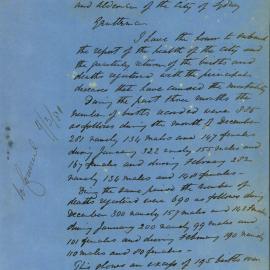 and Aldermen of the City of Sydney
Gentlemen
I have the honor to submit
the report of the health of the city and
the quarterly return of the births and
deaths registered with the principal
diseases that have caused the mortality
During the past three months the
number of births recorded were 885
as follows during the month of December
281 namely 134 males and 147 females
during January 322 namely 155 males and
167 females and during February 282
namely 134 males and 148 females.
During the same period the number of
deaths registered were 690 as follows during
December 300 namely 157 males and 143 females
during January 200 namely 99 males and
101 females and during February 190 namely
110 males and 80 females.
This shows an excess of 195 births over